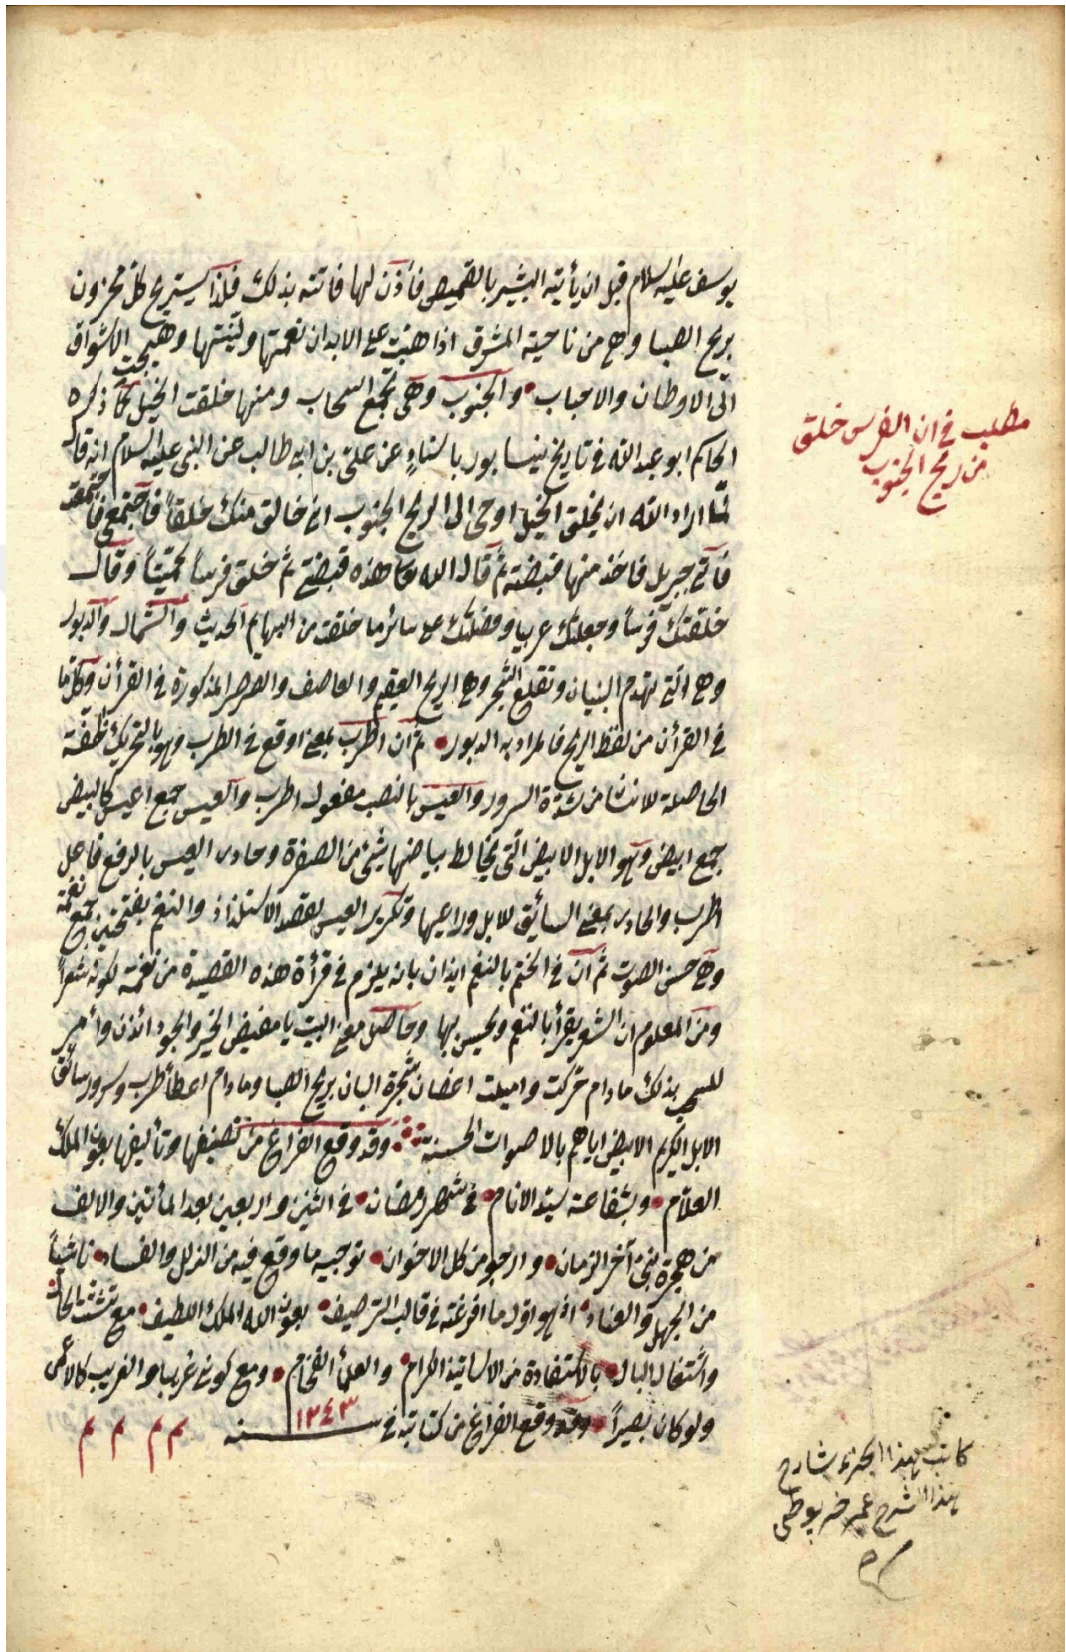 يوسف عليه السلام قبل ان يأتيه البشير بالقميص فأذن لها فاتته بذلك فلذا يستريح كل محزون
بريح الصبا وهى من ناحية المشرق اذا هبت على الابدان نعمتها ولينتها وهيجت الاشواق
الى الاوطان والاحباب والجنوب وهى تجمع السحاب ومنها خلقت الخيل كما ذكره
الحاكم ابو عبد الله فى تاريخ نيسابور باسناده عن على بن ابى طالب عن النبى عليه السلام انه قال
لما اراد الله ان يخلق الخيل اوحى الى الريح الجنوب انى خالق منك خلقاً فاجتمعى فاجتمعت
فأتى جبريل فاخذ منها قبضة ثم قال الله هذه قبضتى ثم خلق فرساً كميتاً وقال
خلقتك فرساً وجعلتك عربيا وفضلتك على سائر ما خلقت من البهايم الحديث والشمال والدبور
وهى التى تهدم البنيان وتقلع الشجر وهى الريح العقيم والعاصف والصرصر المذكورة فى القرأن وكل ما
فى القرأن من لفظ الريح فالمراد به الدبور ثم ان اطرب بمعنى اوقع فى الطرب وهو بالتحريك خفة
الحاصلة للانسان من شدة السرور والعيس بالنصب مفعول اطرب والعيس جمع اعيس كالبيض
جمع ابيض وهو الابل الابيض التى يخالط بياضها شئ من الصفرة وحادى العيس بالرفع فاعل
اطرب والحادى بمعنى السائق للابل وراعيها وتكرير العيس لقصد الاستلذاذ والنغم بفتحتين جمع نغمة
وهى حسن الصوت ثم ان فى الختم بالنغم ايذان بانه يلزم فى قرأة هذه القصيدة من نغمة لكونه شعراً
ومن المعلوم ان الشعر يقرأ بالنغم ويحسن بها وحاصل معنى البيت يا مفيض الخير والجود ائذن وأمر
للسحب بذلك مادام حركت واميلت اغصان شجرة البان بريح الصبا ومادام اعطأ طرب وسرور سائق
الابل الكريم الابيض اياهم بالاصوات الحسنة وقد وقع الفراغ من تصنيفها وتأليفها بعون الملك
العلام وبشفاعة سيد الانام فى شهر رمضان فى اثنين واربعين بعد المأتين والالف
من هجرة نبى آخر الزمان وارجو من كل الاخوان توجيه ما وقع فيه من الزلل والفساد ناشياً
من الجهل والعناد اذ هو اول ما افرغته فى قالب الترصيف بعون الله الملك اللطيف مع تشتت الحال
واشتغال البال بالاستفادة من الاساتيذ الكرام والعلمأ الفخام ومع كونى غريبا والغريب كالاعمى
ولو كان بصيراً وقد وقع الفراغ من كتابته فى سنه ١٢٤٣ م م م م
مطلب فى ان الفرس خلق
من ريح الجنوب
كاتب هذا الجزء شارح
هذا الشرح عمر خربوطى